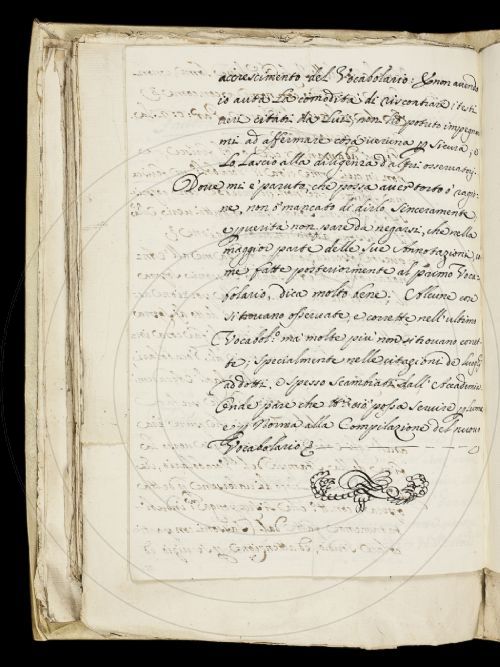 accrescimento del Vocabolario: E non avendo
io avuta la comodità di riscontrare i testi
citati da Lui, non ho potuto impegnar
mi ad affermare cosa veruna p sicura, e
lo lascio alla diligenza d'altri osservatori.
Dove mi è paruto, che possa aver torto, ò ragio
ne, non ò mancato di dirlo sinceramente
e p verità non pare da negarsi, che nella
maggior parte delle sue Annotazioni, co
me fatte posteriormente al primo Voca
bolario, dica molto bene; Alcune cose
si trovano osservate, e corrette nell'ultimo
Vocabol.o ma molte più non si trovano corret
te: specialmente nelle citazioni de luoghi
addotti, e spesso scambiati dall'Accademia
Onde pare che possa servire p lume
e p Norma alla Compilazione del nuovo
Vocabolario